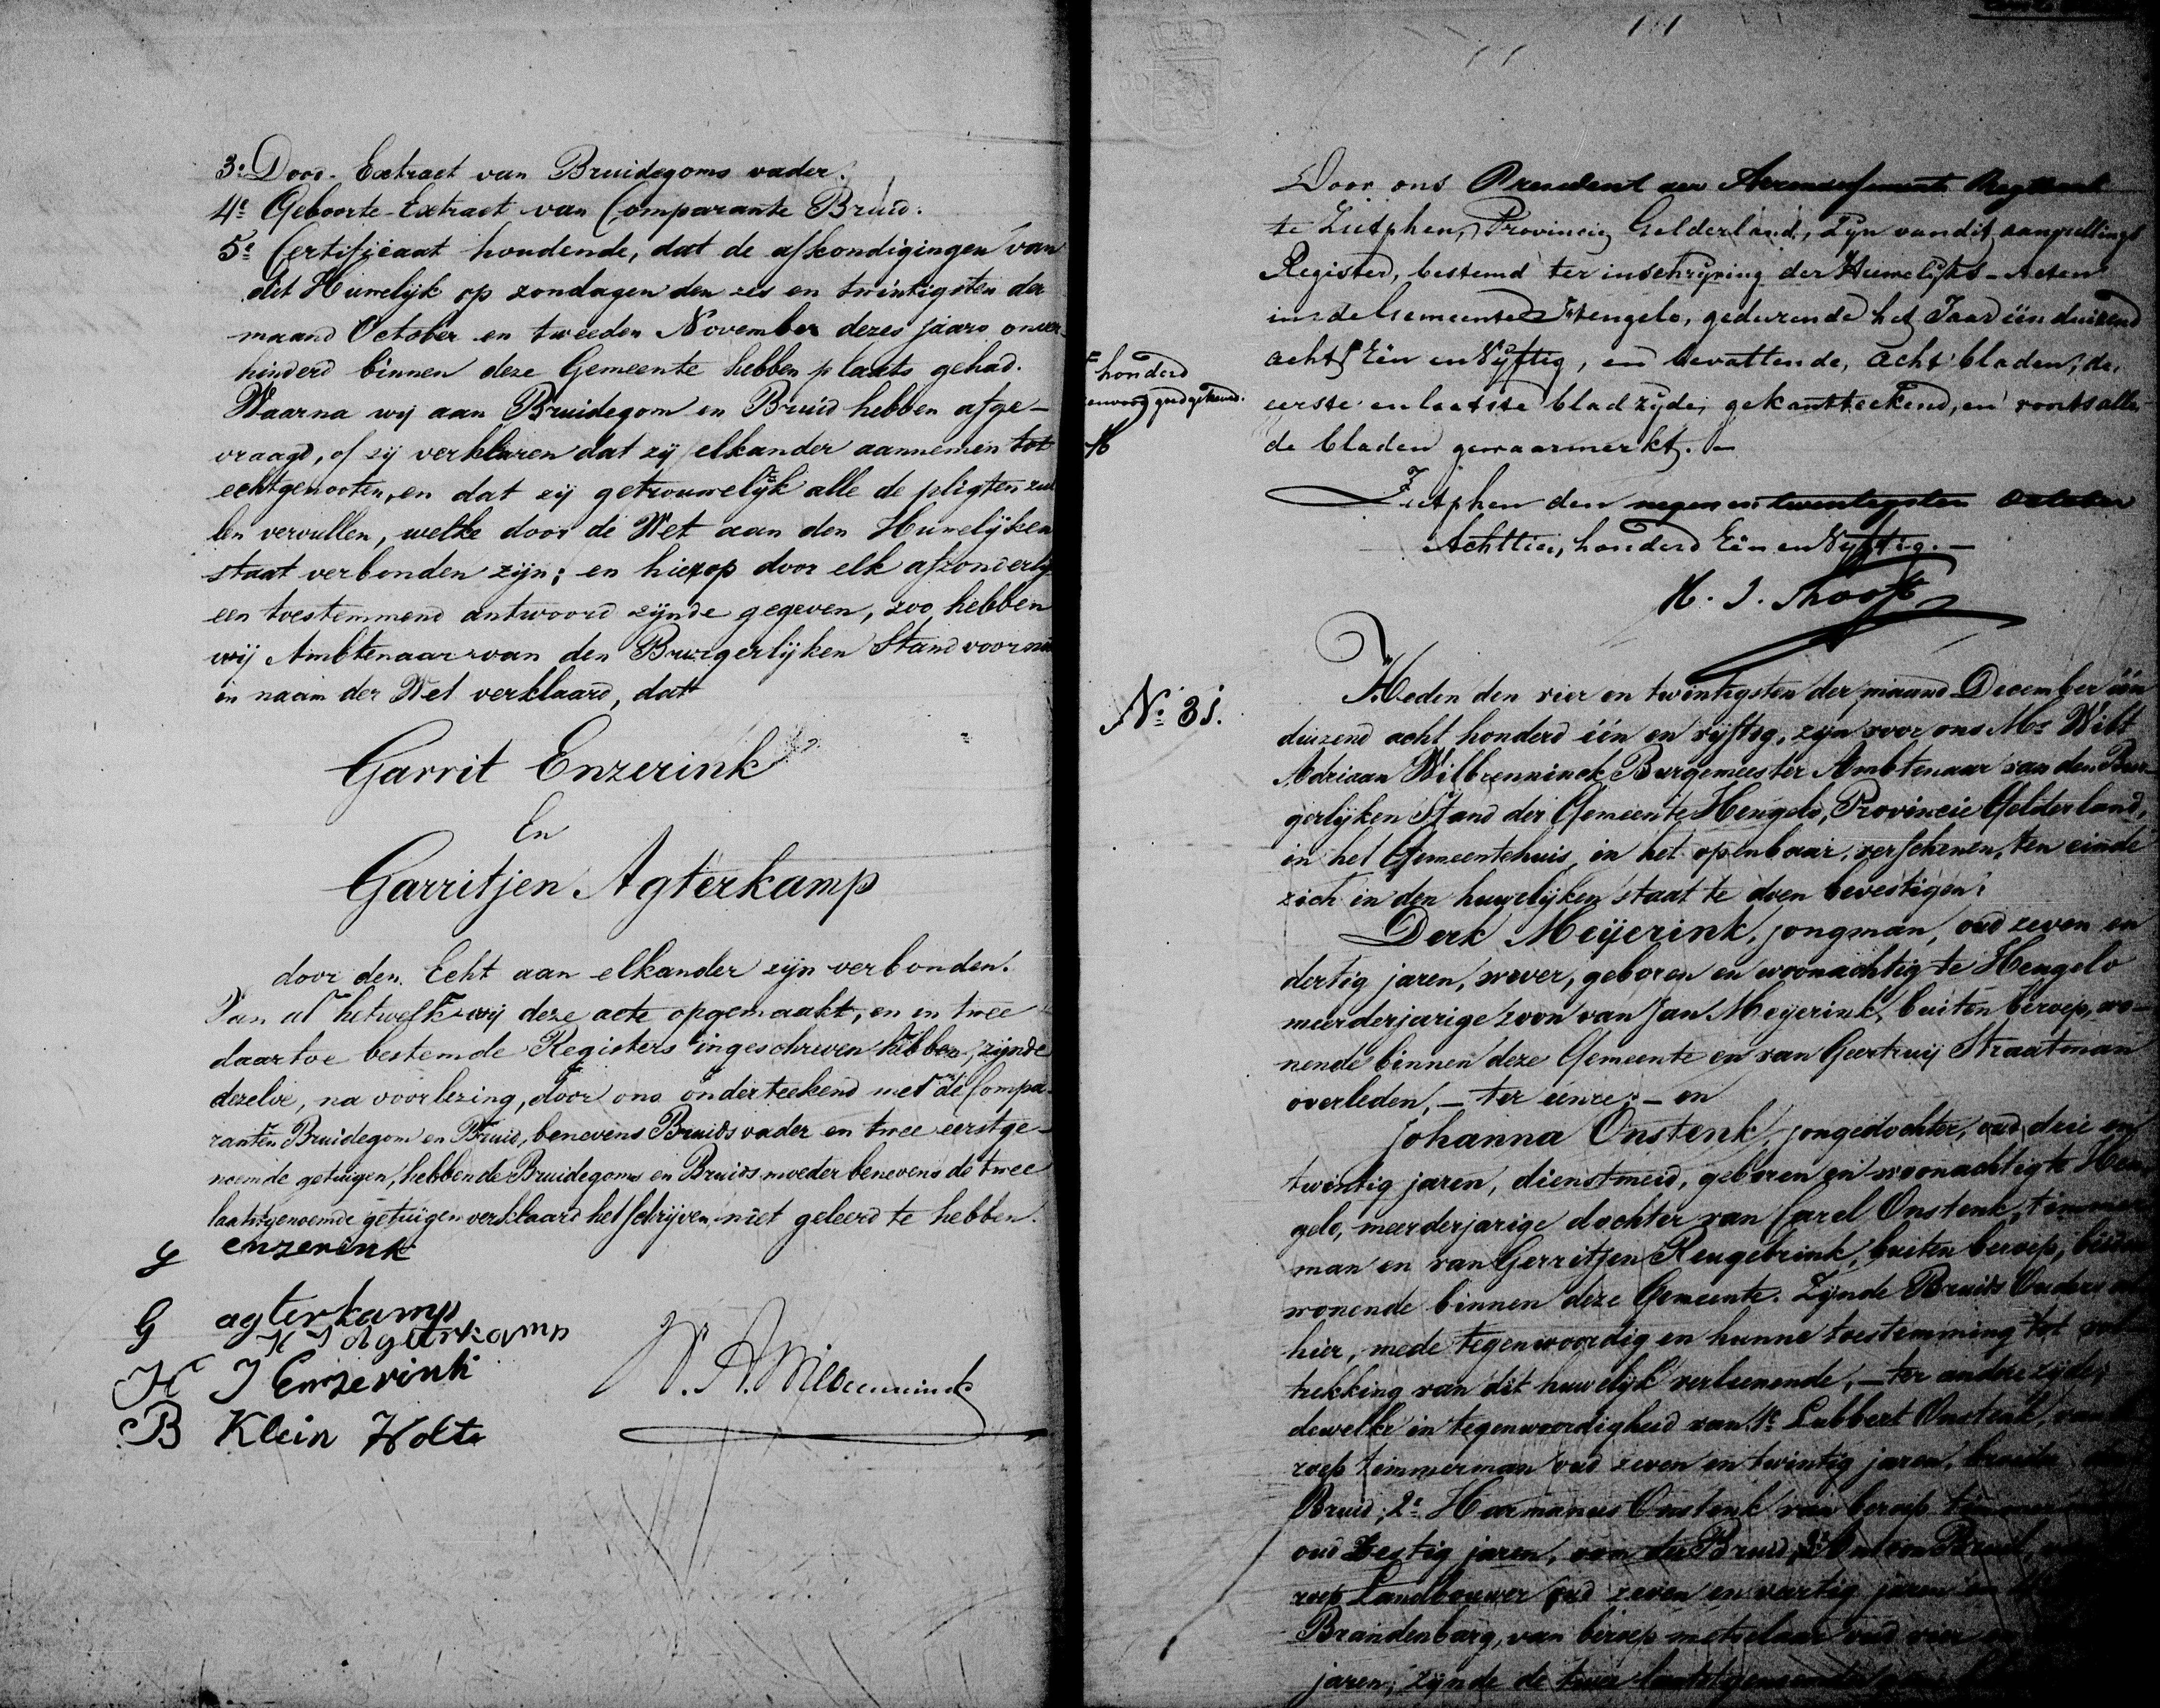 3º Dood-Extract van Bruidegoms vader.
4º Geboorte-Extract van Comparante Bruid.
5º Certificaat houdende, dat de afkondigingen van
dit Huwelijk op zondagen den zes en twintigsten der
maand October en tweeden November dezes jaars onver-
hinderd binnen deze Gemeente hebben plaats gehad.
Waarna wij aan Bruidegom en Bruid hebben afge-
vraagd, of zij verklaren dat zij elkander aannemen tot
echtgenooten, en dat zij getrouwelijk alle de pligten zul
len vervullen, welke door de Wet aan den Huwelijken
staat verbonden zijn; en hierop door elk afzonderlij
een toestemmend antwoord zijnde gegeven, zoo hebben
wij Ambtenaar van den Burgerlijken Stand voornd
in naam der Wet verklaard, dat
Garrit Enzerink
En
Garritjen Agterkamp
door den Echt aan elkander zijn verbonden.
Van al hetwelk wij deze acte opgemaakt, en in twee
daartoe bestemde Registers ingeschreven hebben, zijnde
dezelve, na voorlezing, door ons onderteekend met de Compa-
ranten Bruidegom en Bruid, benevens Bruids vader en twee eerstge-
noemde getuigen, hebbende Bruidegoms en Bruids moeder benevens de twee
laatstgenoemde getuigen verklaard het schrijven niet geleerd te hebben.
G enzerink
G agterkamp
H J Agterkamp
H J Enzerink
B Klein Holte
W. A. Wilbrenninck
Door ons President der Arrondissements Regtbank
te Zutphen, Provincie Gelderland, zijn van dit aanvullings
Register, bestemd ter inschrijving der Huwelijks-Acten
in de Gemeente Hengelo, gedurende het Jaar één duizend
acht Eén en Vyftig, en bevattende, acht bladen, de
eerste en laatste bladzyde, gekantteekend, en voorts alle
de bladen gewaarmerkt.
honderd
envoorgoedgekeurd.
Zutphen den negen en twentigsten October
Achttien honderd Eén en Vyftig.
Nº 31.
Heden den vier en twintigsten der maand December één
duizend acht honderd één en vijftig, zijn voor ons Mr Wilt
Adriaan Wilbrenninck Burgemeester Ambtenaar van den Bur-
gerlijken Stand der Gemeente Hengelo, Provincie Gelderland,
in het Gemeentehuis, in het openbaar, verschenen, ten einde
zich in den huwelijken staat te doen bevestigen:
Derk Meijerink, jongman, oud zeven en
dertig jaren, wever, geboren en woonachtig te Hengelo
meerderjarige zoon van Jan Meyerink, buiten beroep, wo-
nende binnen deze Gemeente en van Geertruij Straatman
overleden, - ter eenre; - en
Johanna Onstenk, jongedochter, oud drie en
twintig jaren, dienstmeid, geboren en woonachtig te Hen
gelo, meerderjarige dochter van Carel Onstenk, timmer
man en van Gerritjen Reugebrink, buiten beroep, beiden
wonende binnen deze Gemeente. Zijnde Bruids Ouders al
hier, mede tegenwoordig en hunne toestemming tot vol
trekking van dit huwelijk verleenende, - ter andere zijde;
dewelke in tegenwoordigheid van 1º Lubbert Onstenk, van
roep timmerman oud zeven en twintig jaren, broeder
Bruid; 2º Harmanus Onstenk van beroep timmer
oud Zestig jaren, oom der Bruid, 3º
roep Landbouwer oud zeven en veertig jaren en 4º
Brandenbarg, van beroep metselaar oud vier
jaren, zijnde de twee laatstgenoemde